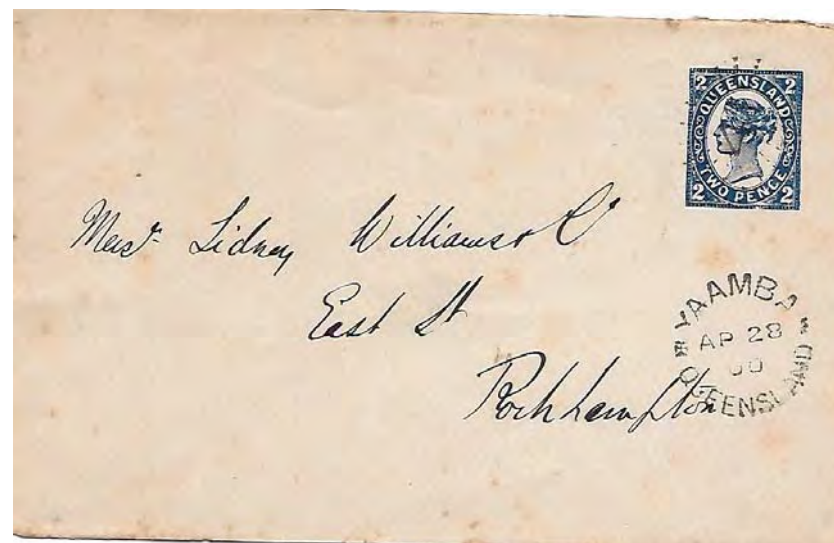 2 QUEENSLAND 2
2 TWO PENCE 2
Messrs Sidney Williams & Co
East St
Rockhampton
YAAMBA
AP 28
00
QUEENSLAND